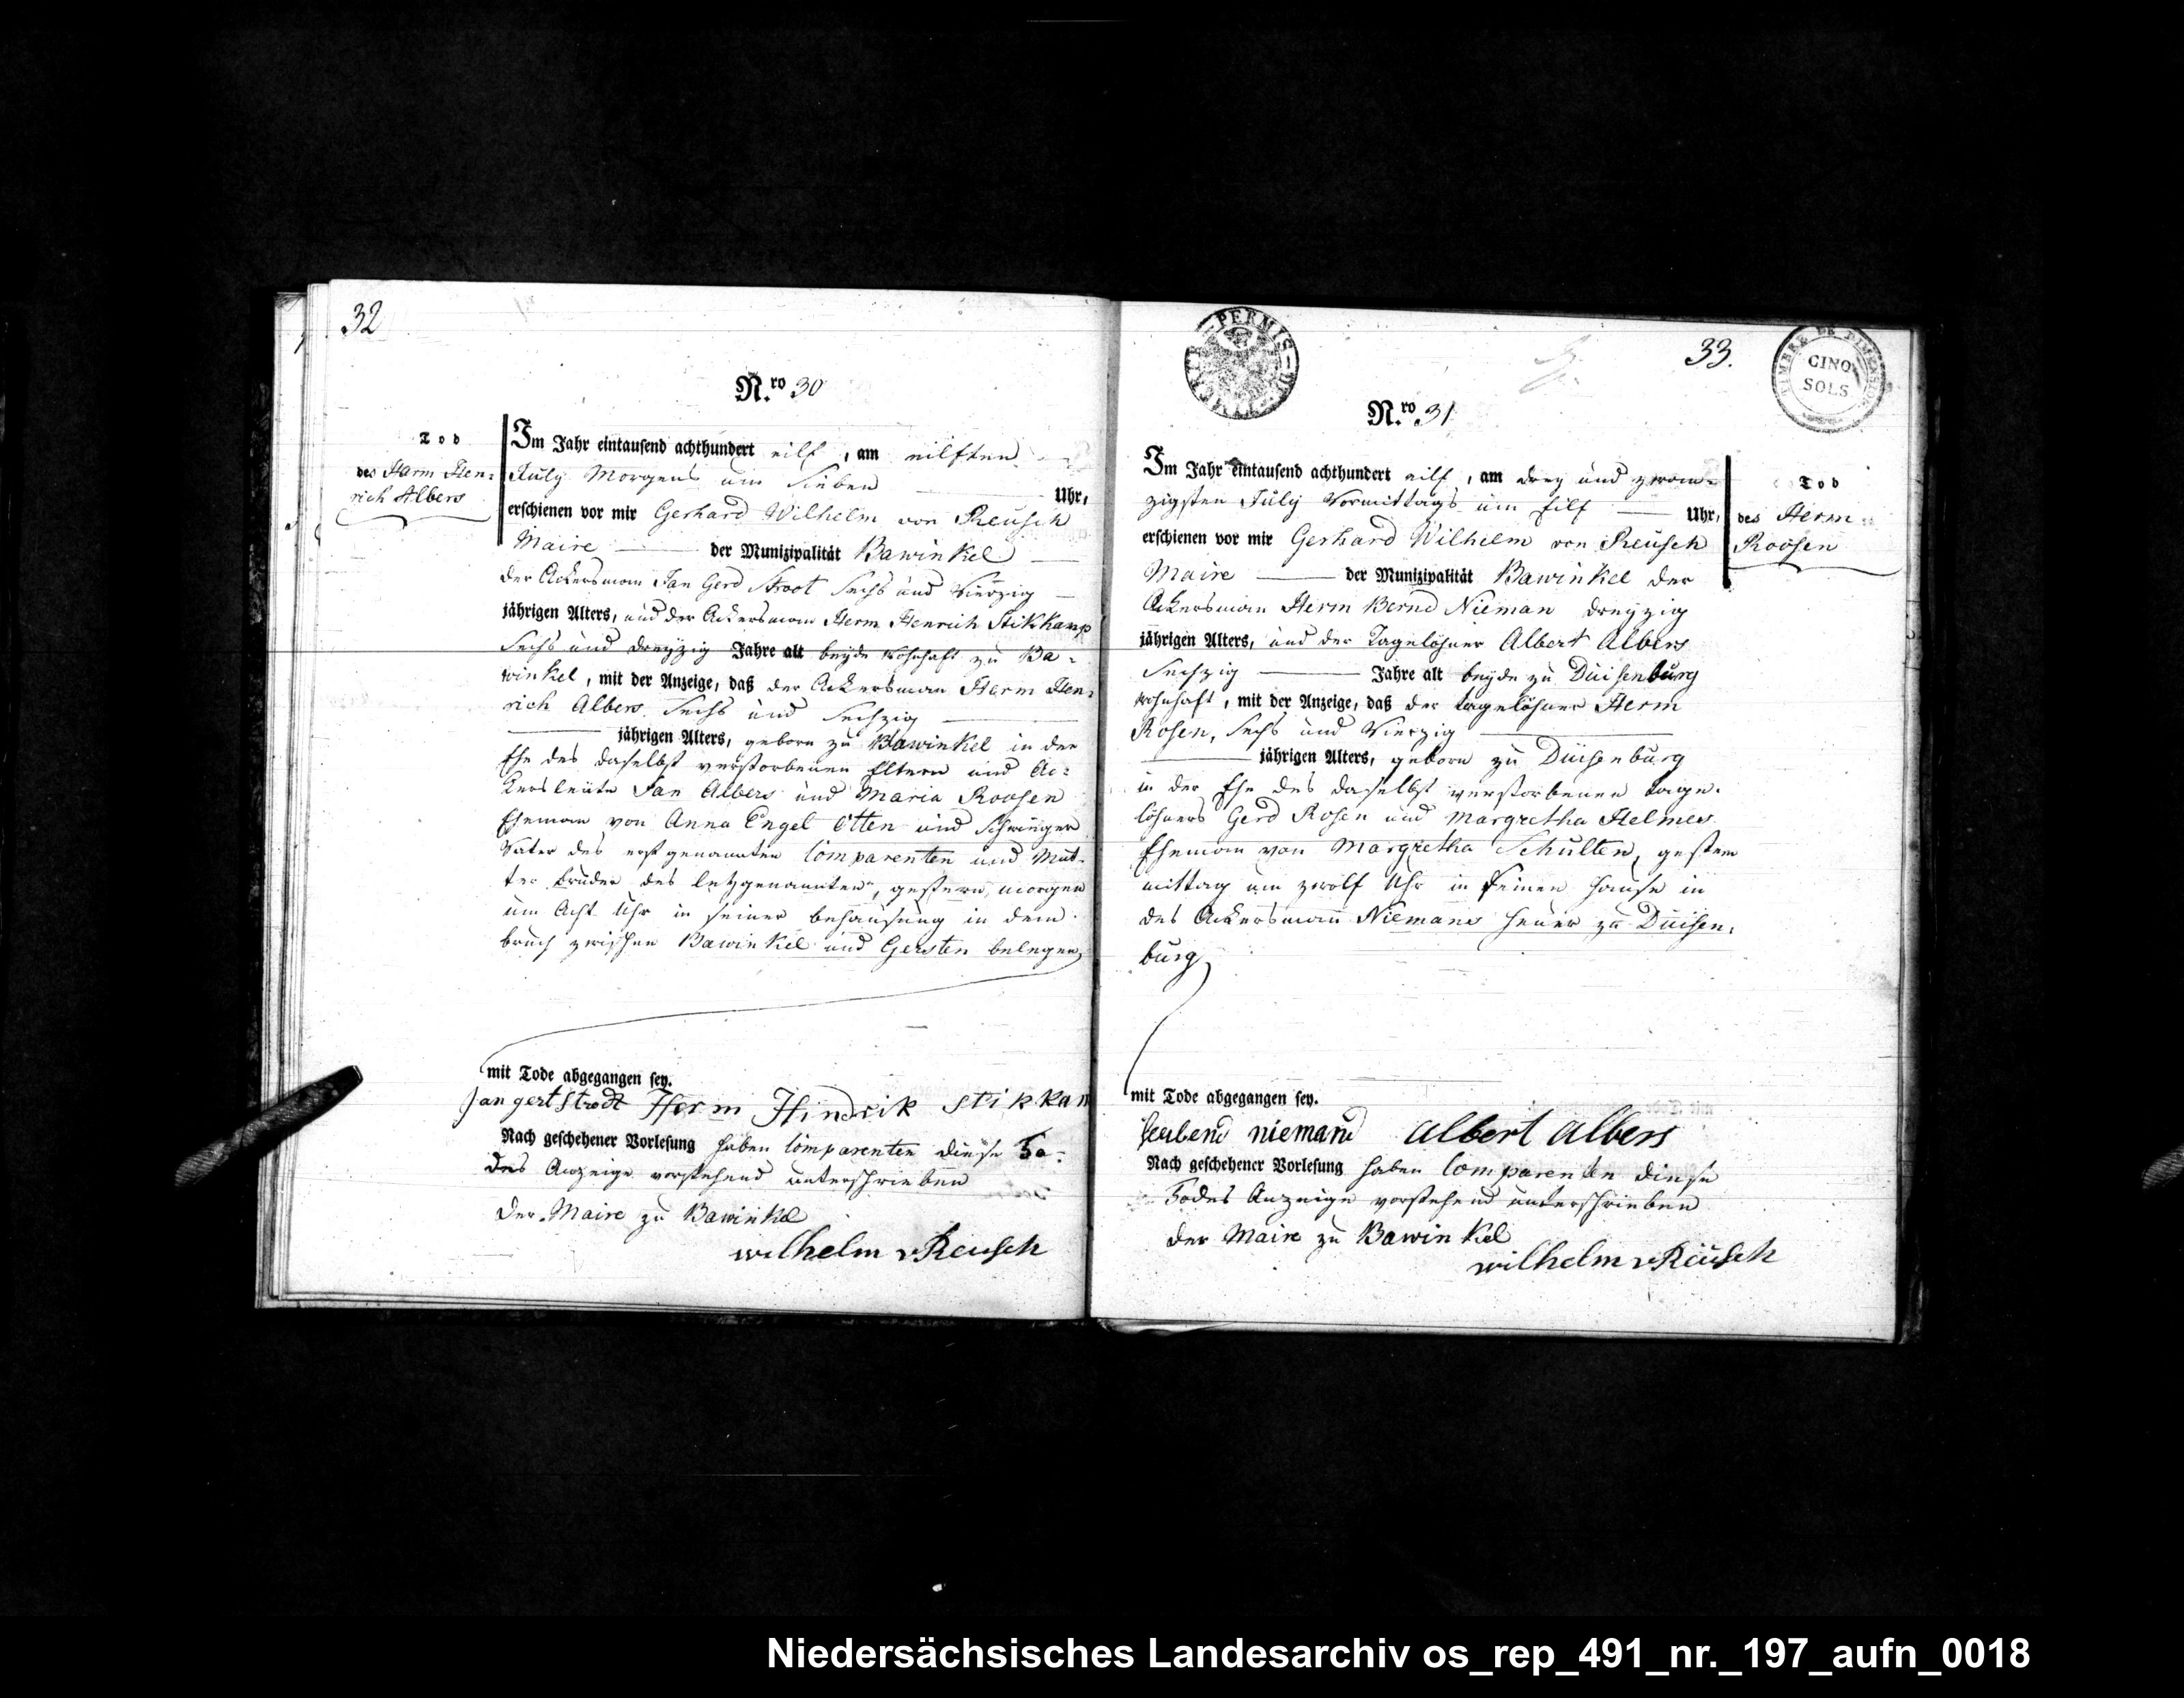 32
N.ro 30
Tod
des Harm Hen=
rich Albers
Im Jahr eintausend achthundert eilf, am eilften
July Morgens um Sieben Uhr,
erschienen vor mir Gerhard Wilhelm von Reusch
Maire der Munizipalität Bawinkel
der Ackersman Jan Gerd Stroot Sechs und Vierzig
jährigen Alters, und der Ackersman Herm Henrich Stikkamp
Sechs und dreyzig Jahre alt beyde wohnhaft zu Ba=
winkel, mit der Anzeige, daß der Ackersman Herm Hen=
rich Albers Sechs und Sechzig
jährigen Alters, geborn zu Bawinkel in der
Ehe des daselbst verstorbenen Eltern und Ac=
kersleute Jan Albers und Maria Roosen
Eheman von Anna Engel Otten und Schwieger
Vater des erst genannten Comparenten und Mut=
ter bruder des letzgenannten, gestern morgen
um Acht Uhr in seiner behausung in dem
bruch zwischen Bawinkel und Gersten belegen
mit Tode abgegangen sey.
Jan gert Strodt Herm Hindrik Stikkam
Nach geschehener Vorlesung haben Comparenten diese To=
des Anzeige vorstehend unterschrieben
Der Maire zu Bawinkel
Wilhelm v Reusch
PERMIS
33.
TIMBRE DE DIMENSION
CINQ
SOLS
N.ro 31
Im Jahr eintausend achthundert eilf, am drey und zwan=
zigsten July Vormittags um Eilf Uhr,
erschienen vor mir Gerhard Wilhelm von Reusch
Maire der Munizipalität Bawinkel der
Ackersman Herm Bernd Nieman dreyzig
jährigen Alters, und der Tagelöhner Albert Albers
Sechzig Jahre alt beyde zu Duisenburg
wohnhaft, mit der Anzeige, daß der tagelöhner Herm
Rosen, Sechs und Vierzig
jährigen Alters, geborn zu Duisenburg
in der Ehe des daselbst verstorbenen tage=
löhners Gerd Rosen und Margretha Helmes
Eheman von Margretha Schulten, gestern
mittag um zwölf Uhr in seinen Hause in
des Ackersman Niemans heuer zu Duisen=
burg
mit Tode abgegangen sey.
niemand albert albers
Nach geschehener Vorlesung haben Comparenten diese
Todes Anzeige vorstehend unterschrieben
Der Maire zu Bawinkel
Wilhelm v Reusch
Tod
des Herm
Roosen
Niedersächsisches Landesarchiv os_rep_491_nr._197_aufn_0018